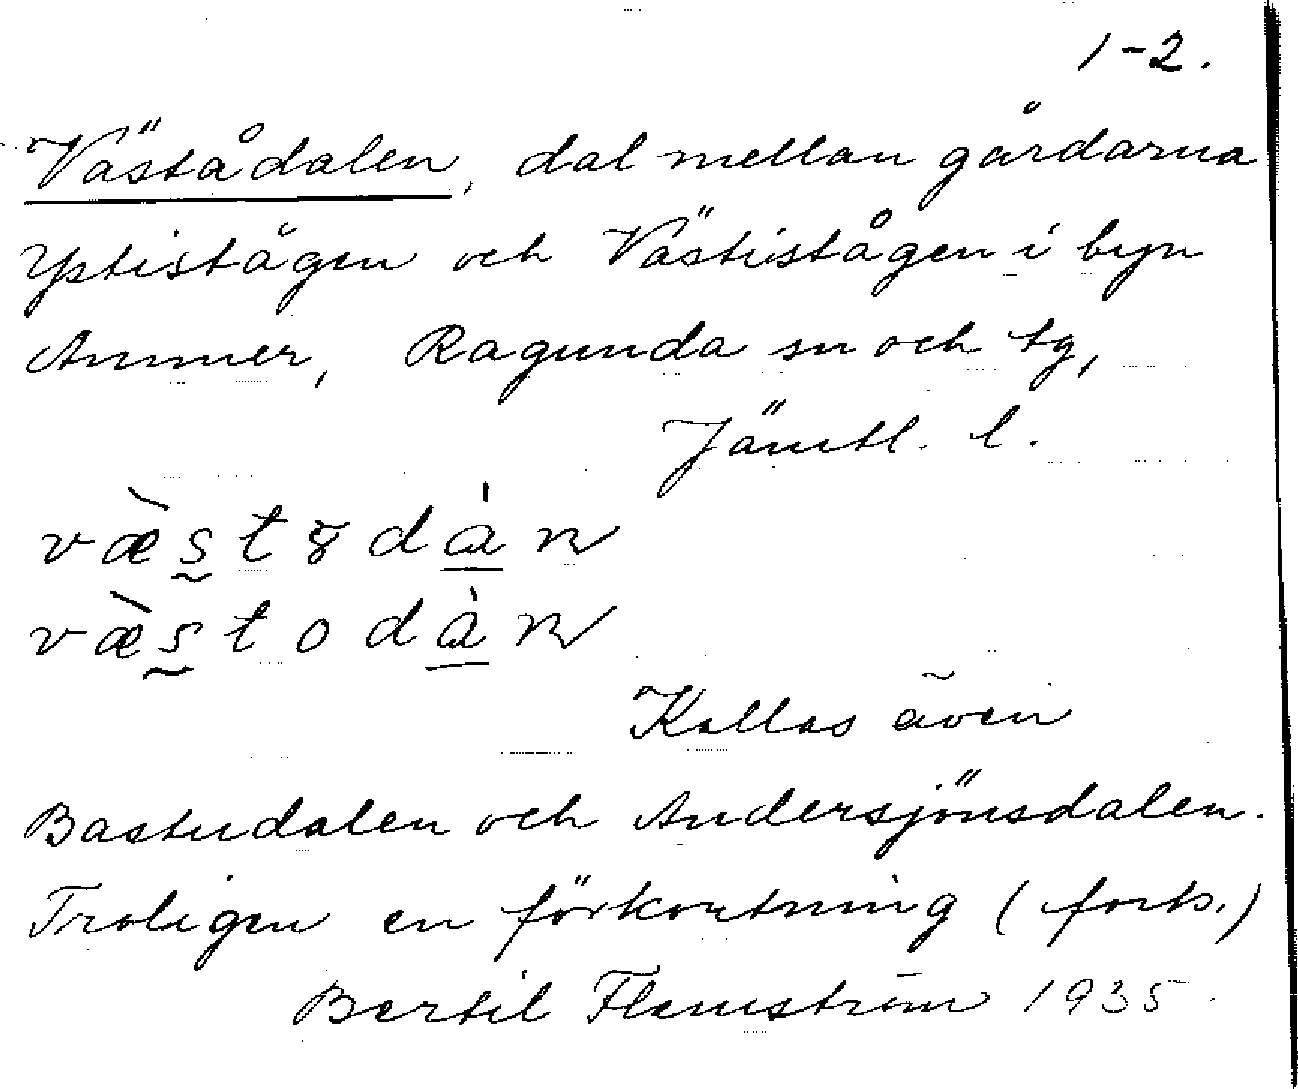 1-2.
Västådalen, dal mellan gårdarna
Yptistågen och Västistågen i byn
Ammer, Ragunda sn och tg,
Jämtl. l.
væ̀stodàn
væ̀stodàn
Kallas även
Bastudalen och Andersjönsdalen.
Troligen en förkortning (forts.)
Bertil Flemström 1935